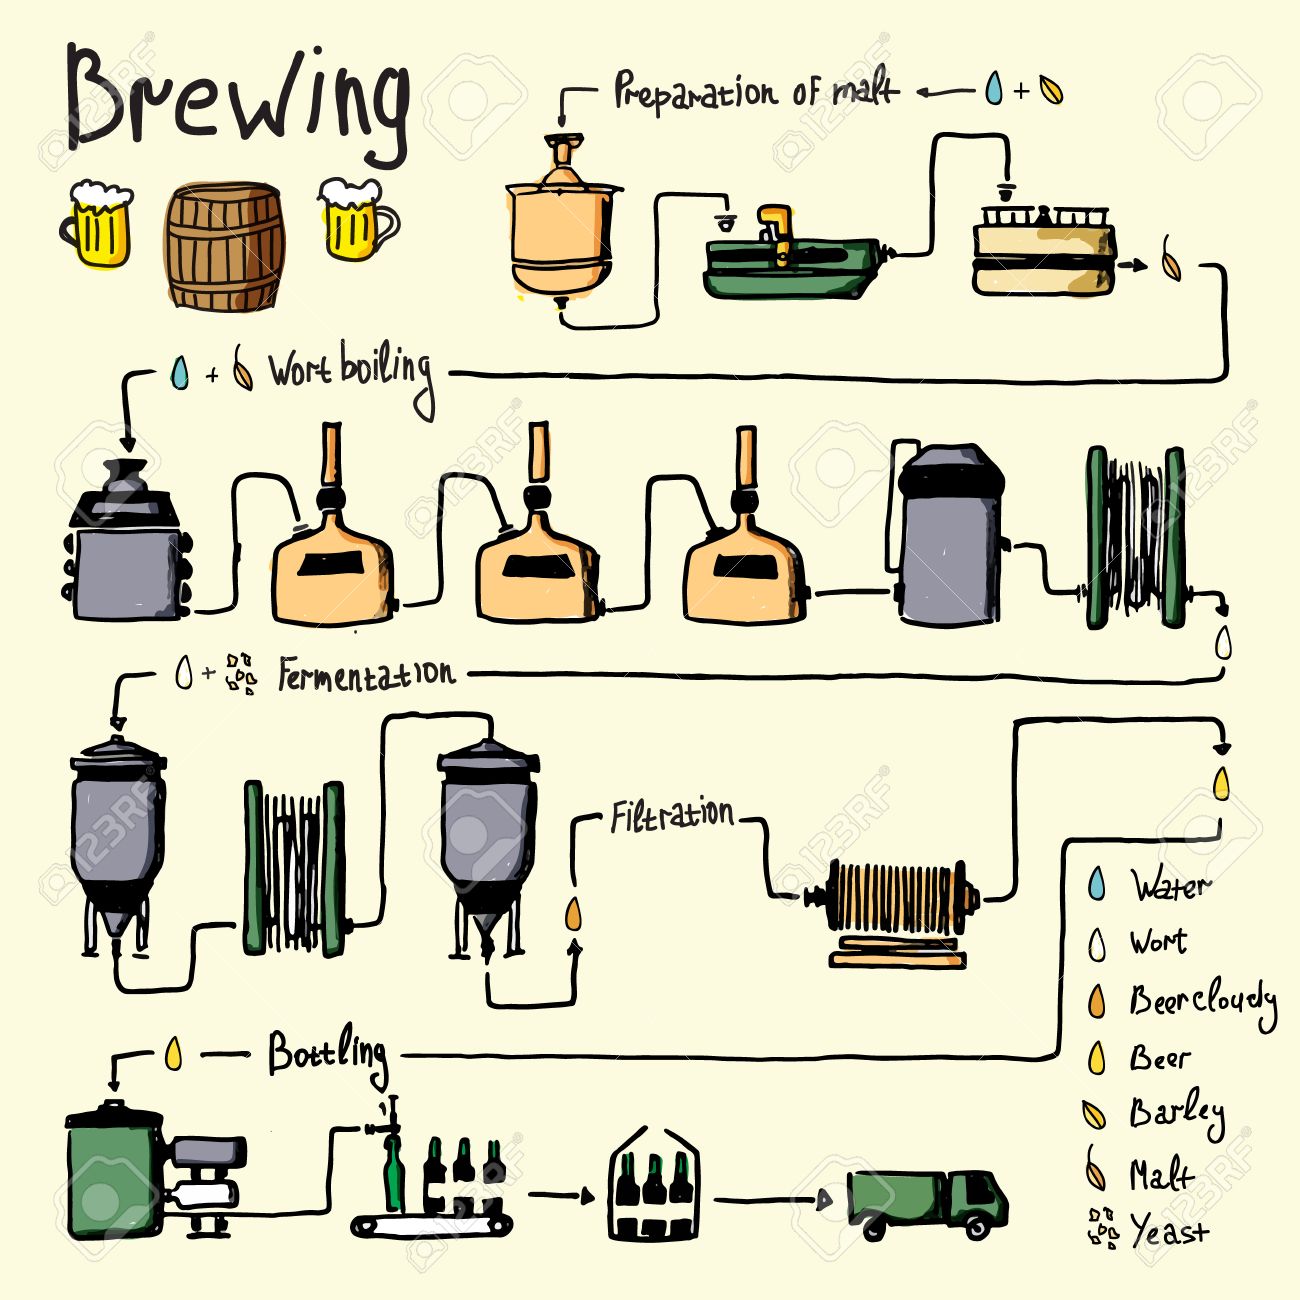 Brewing
Preparation of malt
+
+ Wort boiling
+ Fermentation
Filtration
Water
Wort
Beer cloudy
Beer
Barley
Malt
Yeast
Bottling
123RF